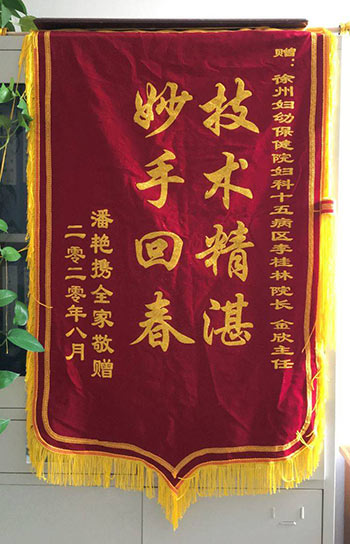 赠：徐州妇幼保健院妇科十五病区李桂林院长 金欣主任
技术精湛
妙手回春
潘艳携全家敬赠
二零二零年八月